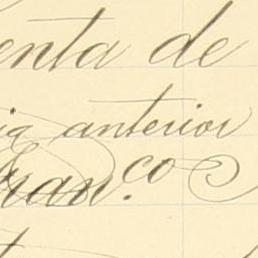 enta de
ia anterior
Fran.co